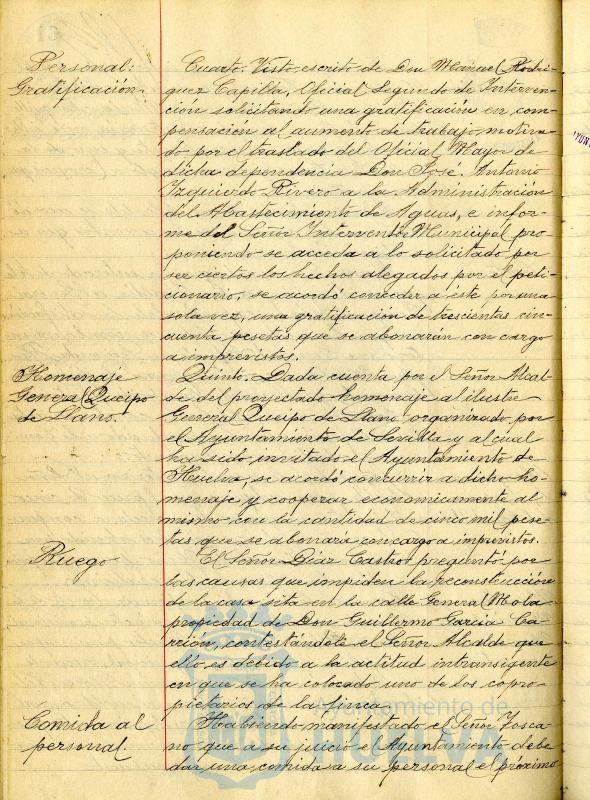 Personal:
Gratificación.
Cuarto. Visto escrito de Don Manuel Rodri-
guez Capilla, Oficial Segundo de Interven-
ción solicitando una gratificación en com-
pensación al aumento de trabajo motiva-
do por el traslado del Oficial Mayor de
dicha dependencia Don José Antonio
Izquierdo Rivero a la Administración
del Abastecimiento de Aguas, e infor-
me del Señor Interventor Municipal pro-
poniendo se acceda a lo solicitado por
ser ciertos los hechos alegados por el peti-
cionario, se acordó conceder a éste por una
sola vez, una gratificación de trescientas cin-
cuenta pesetas que se abonarán con cargo
a imprevistos.
Homenaje
General Queipo
de Llano.
Quinto.- Dada cuenta por el Señor Alcal-
de del proyectado homenaje al ilustre
General Queipo de Llano organizado por
el Ayuntamiento de Sevilla y al cual
ha sido invitado el Ayuntamiento de
Huelva, se acordó concurrir a dicho ho-
menaje y cooperar economicamente al
mismo con la cantidad de cinco mil pese-
tas que se abonará con cargo a imprevistos.
Ruego
El Señor Díaz Castro, preguntó por
las causas que impiden la reconstrucción
de la casa sita en la calle General Mola
propiedad de Don Guillermo García Ca-
rrión, contestándole el Señor Alcalde que
ello es debido a la actitud intransigente
en que se ha colocado uno de los copro-
pietarios de la finca.
Comida al
personal.
Habiendo manifestado el Señor Tosca-
no que a su juicio el Ayuntamiento debe
dar una comida a su personal el próximo
Ayuntamiento de
HUELVA